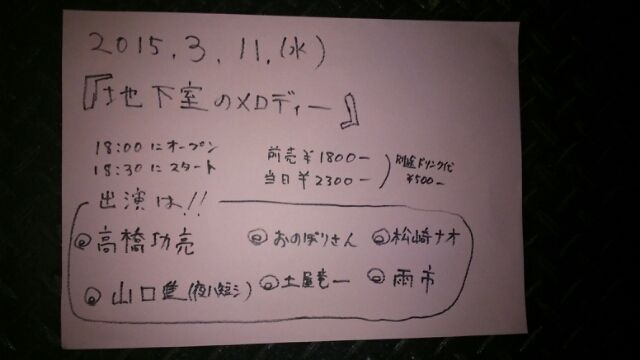 2015.3.11.(水)
『地下室のメロディー』
18:00にオープン
18:30にスタート
前売¥1800-
当日¥2300-
別途ドリンク代
¥500-
出演は!!
◎高橋功亮
◎おのぼりさん
◎松崎ナオ
◎山口進(夜ハ短シ)
◎土屋竜一
◎雨市